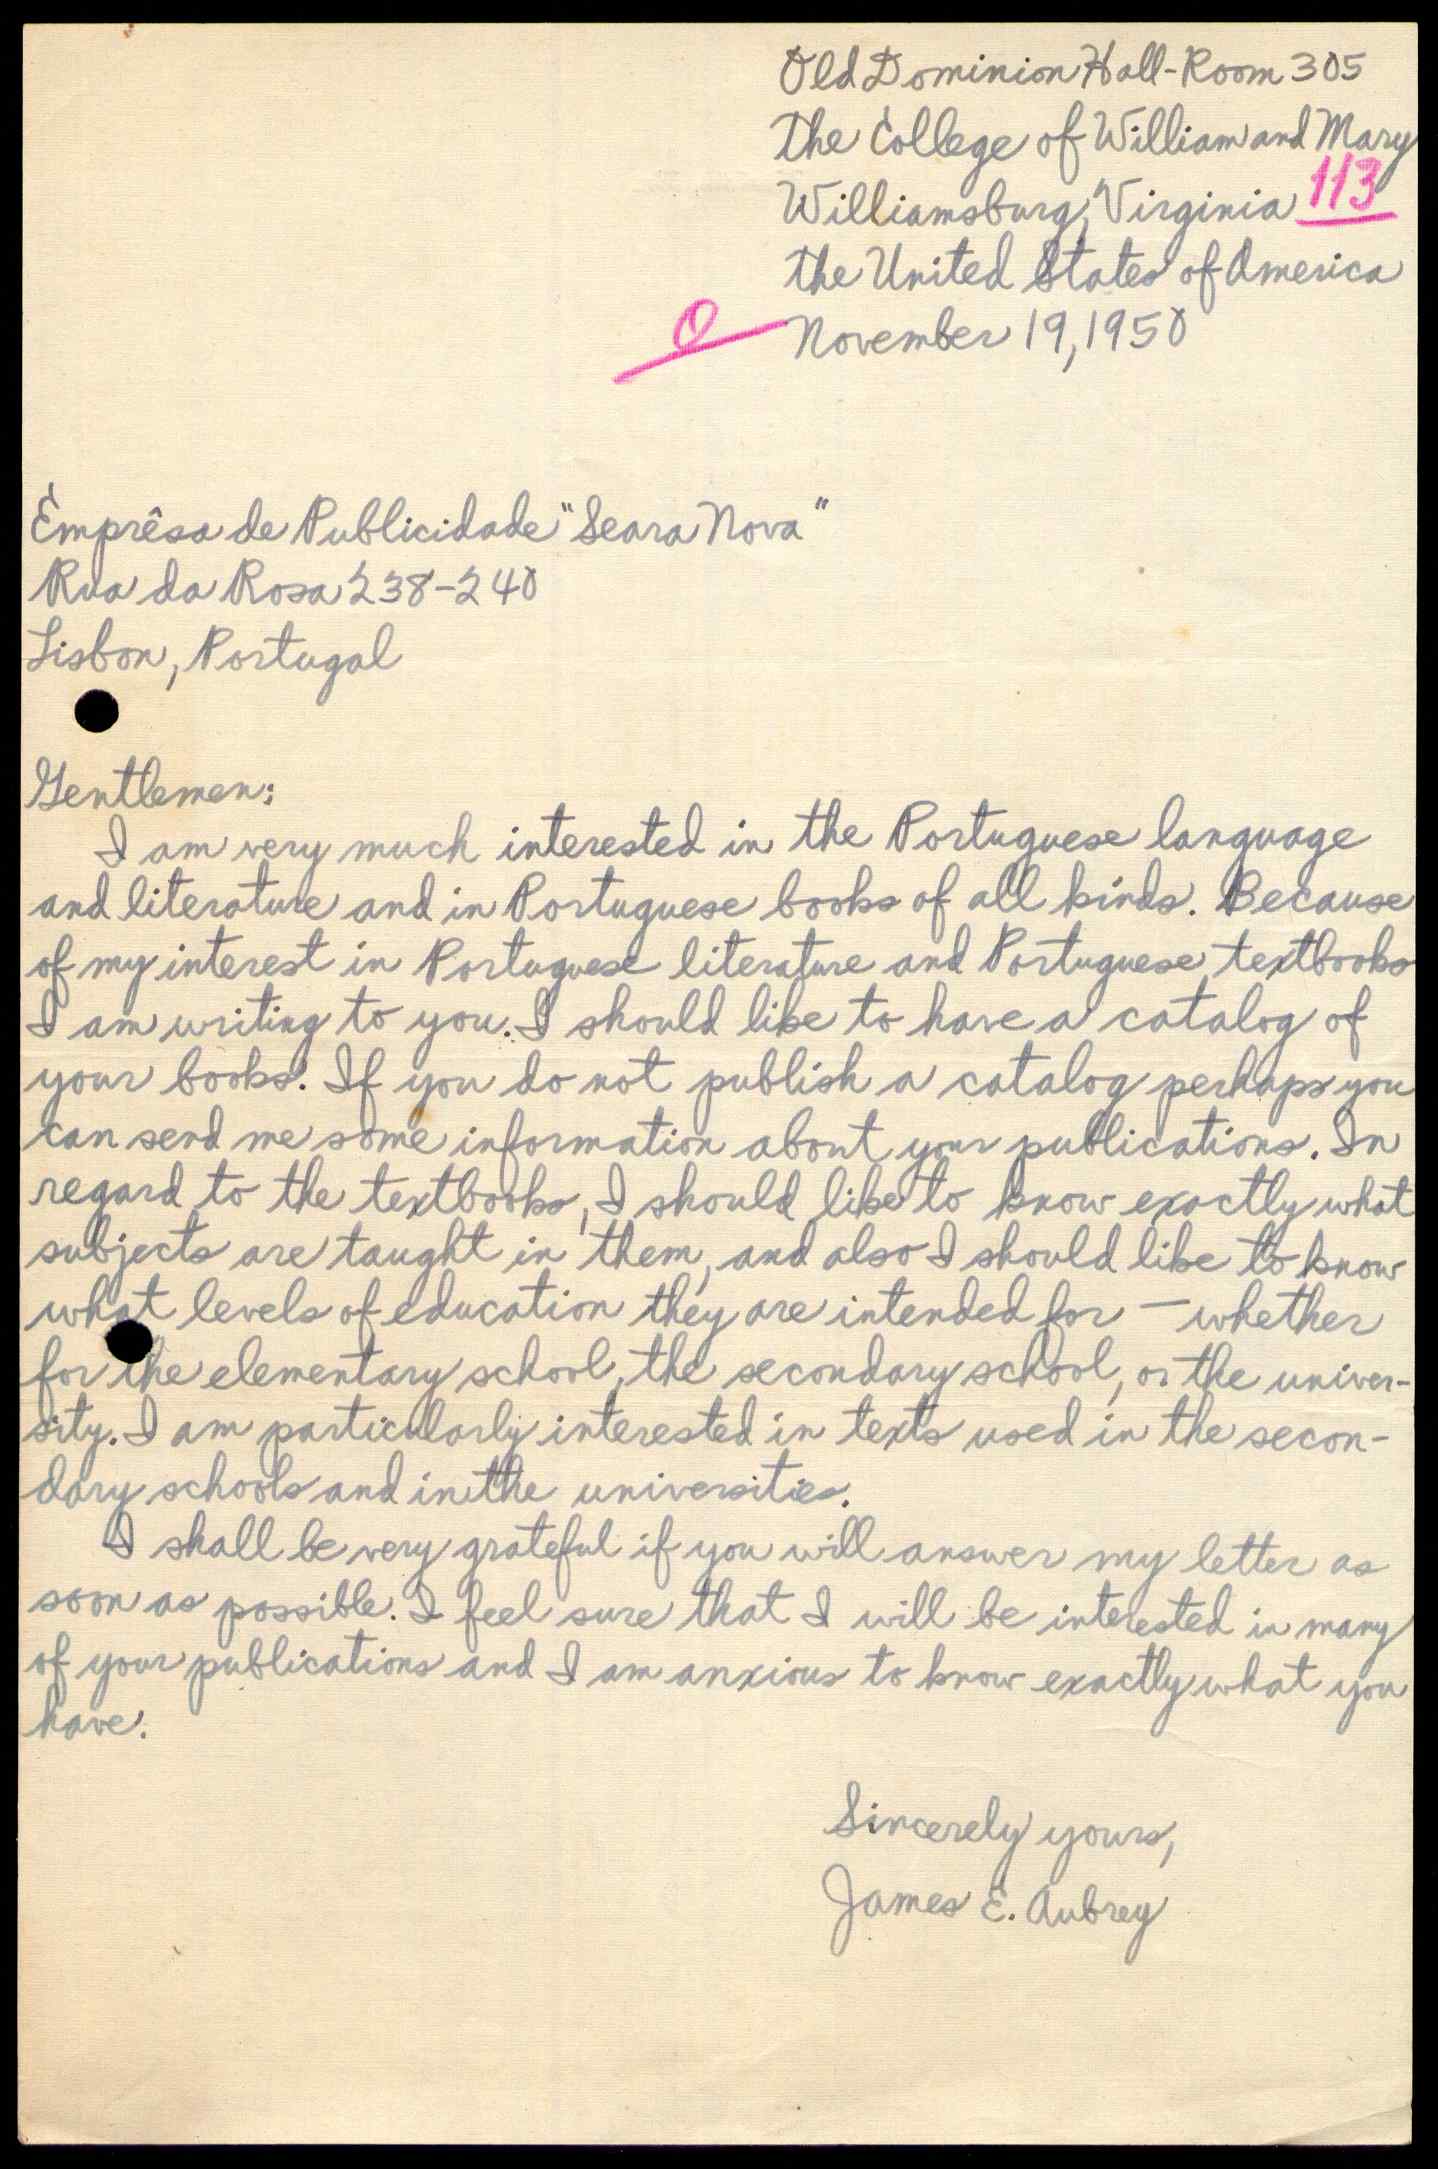 Old Dominion Hall-Room 305
The College of William and Mary
113
Williamsburg, Virginia
the United States of America
November 19, 1950
Emprêsa de Publicidade "Seara Nova"
Rua da Rosa 238-240
Lisbon, Portugal
Gentlemen:
I am very much interested in the Portuguese language
and literature and in Portuguese books of all kinds. Because
of my interest in Portuguese literature and Portuguese textbooks
I am writing to you. I should like to have a catalog of
your books. If you do not publish a catalog perhaps you
can send me some information about your publications. In
regard to the textbooks, I should like to know exactly what
subjects are taught in them, and also I should like to know
what levels of education they are intended for — whether
for the elementary school, the secondary school, or the univer-
sity. I am particularly interested in texts used in the secon-
dary schools and in the universities.
I shall be very grateful if you will answer my letter as
soon as possible. I feel sure that I will be interested in many
of your publications and I am anxious to know exactly what you
have.
Sincerely yours,
James E. Aubrey